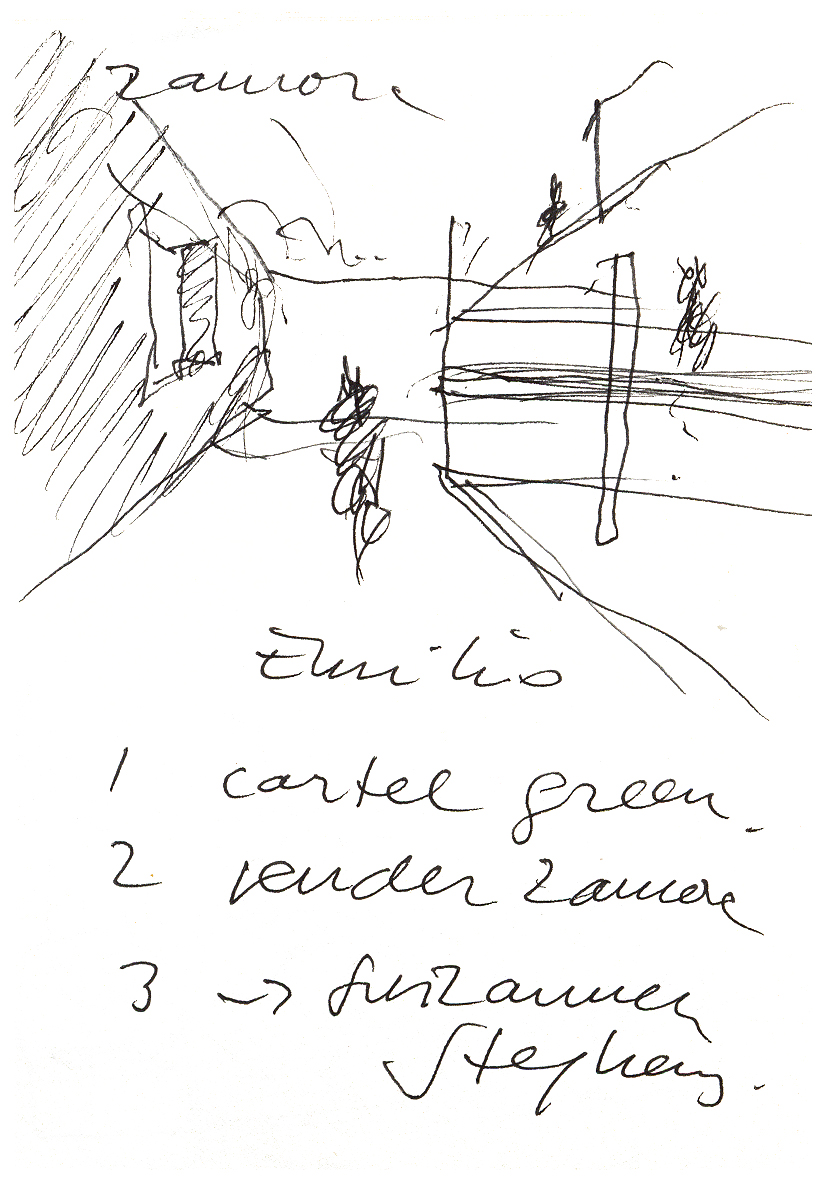 Zamora
Emilio
1 cartel green.
2 render Zamora
3 →
Stephens.